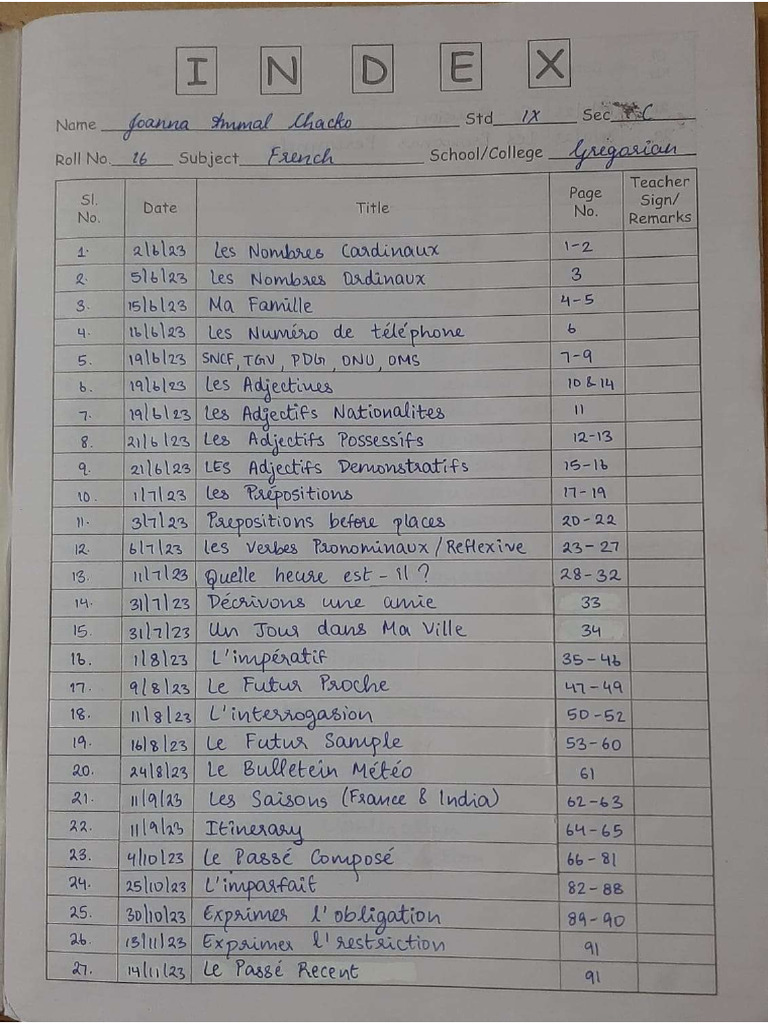 INDEX
Name Joanna Ammal Chacko Std IX Sec C
Roll No. 26 Subject French School/College Gregorian
Sl. No. Date Title Page No. Teacher Sign/ Remarks
1. 2/6/23 Les Nombres Cardinaux 1-2
2. 5/6/23 Les Nombres Ordinaux 3
3. 15/6/23 Ma Famille 4-5
4. 16/6/23 Les Numéro de téléphone 6
5. 19/6/23 SNCF, TGV, PDG, ONU, OMS 7-9
6. 19/6/23 Les Adjectives 10 & 14
7. 19/6/23 Les Adjectifs Nationalites 11
8. 21/6/23 Les Adjectifs Possessifs 12-13
9. 21/6/23 LES Adjectifs Demonstratifs 15-16
10. 1/7/23 Les Prépositions 17-19
11. 3/7/23 Prepositions before places 20-22
12. 6/7/23 Les Verbes Pronominaux/Reflexive 23-27
13. 11/7/23 Quelle heure est-il? 28-32
14. 31/7/23 Décrivons une amie 33
15. 31/7/23 Un Jour dans Ma Ville 34
16. 1/8/23 L'impératif 35-46
17. 9/8/23 Le Futur Proche 47-49
18. 11/8/23 L'interrogasion 50-52
19. 16/8/23 Le Futur Sample 53-60
20. 24/8/23 Le Bulletein Météo 61
21. 11/9/23 Les Saisons (France & India) 62-63
22. 11/9/23 Itinerary 64-65
23. 4/10/23 Le Passé Composé 66-81
24. 25/10/23 L'imparfait 82-88
25. 30/10/23 Exprimer l'obligation 89-90
26. 13/11/23 Exprimer l'restriction 91
27. 14/11/23 Le Passé Recent 91